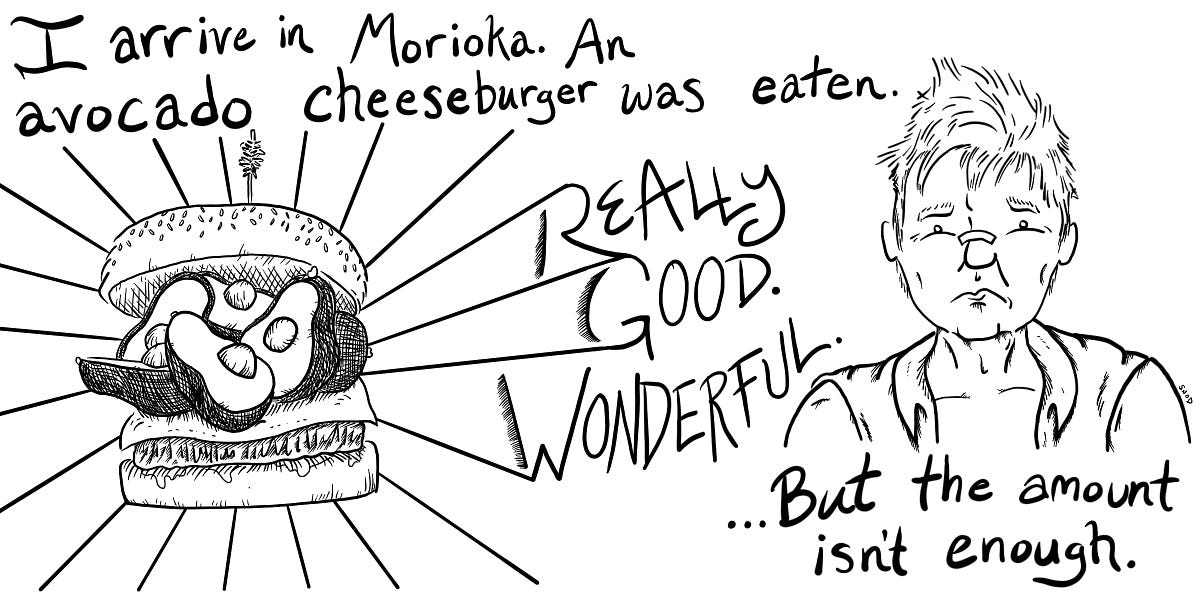 I arrive in Morioka. An
avocado cheeseburger was eaten.
REALLY
GOOD.
WONDERFUL.
...But the amount
isn't enough.